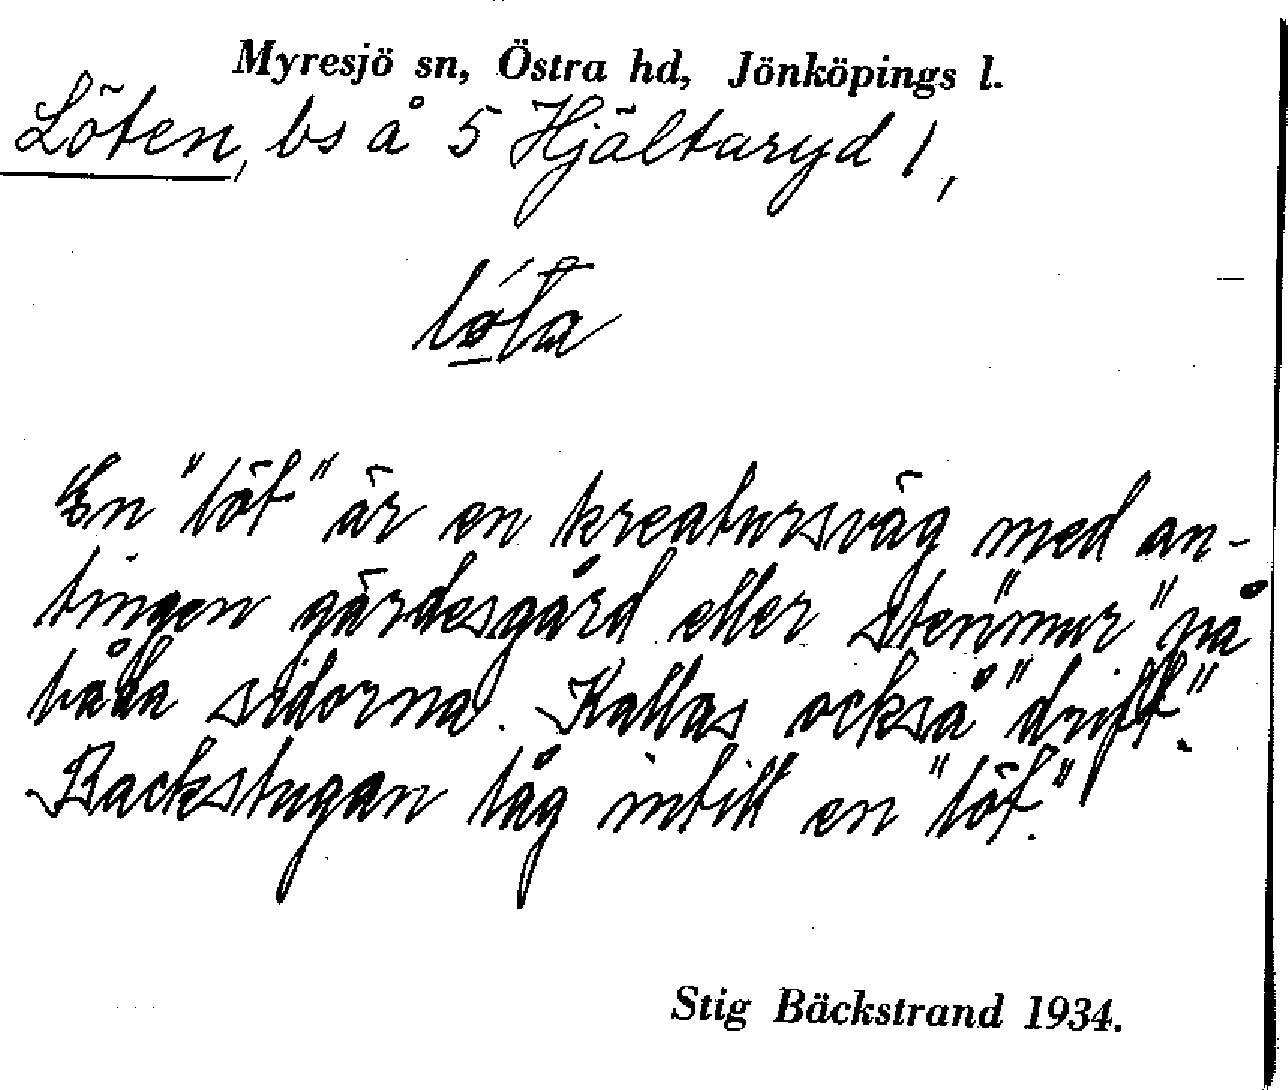 Myresjö sn, Östra hd, Jönköpings l.
Löten, bs å 5 Hjältaryd 1,
En "löt" är en kreatursväg med an-
tingen gärdesgård eller sten"mur" på
båda sidorna. Kallas också "drift".
Backstugan låg intill en "löt."
Stig Bäckstrand 1934.